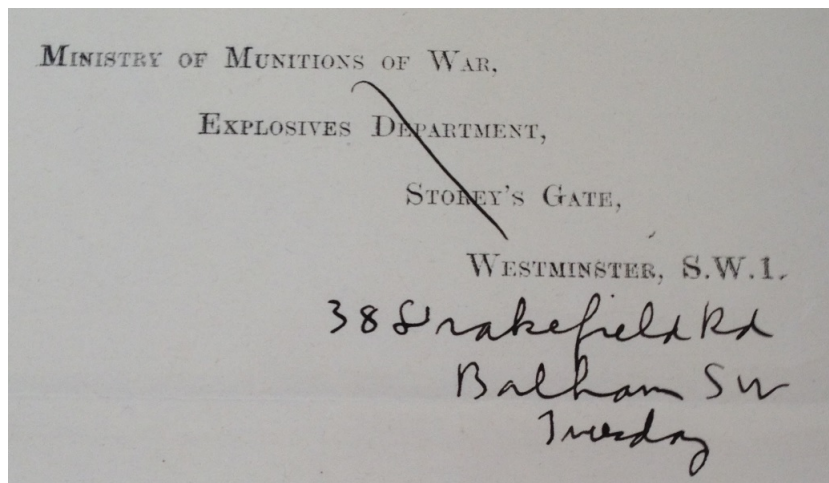 Ministry of Munitions of War,
Explosives Department,
Storey's Gate,
Westminster, S.W.1.
38 Drakefield Rd
Balham SW
Tuesday